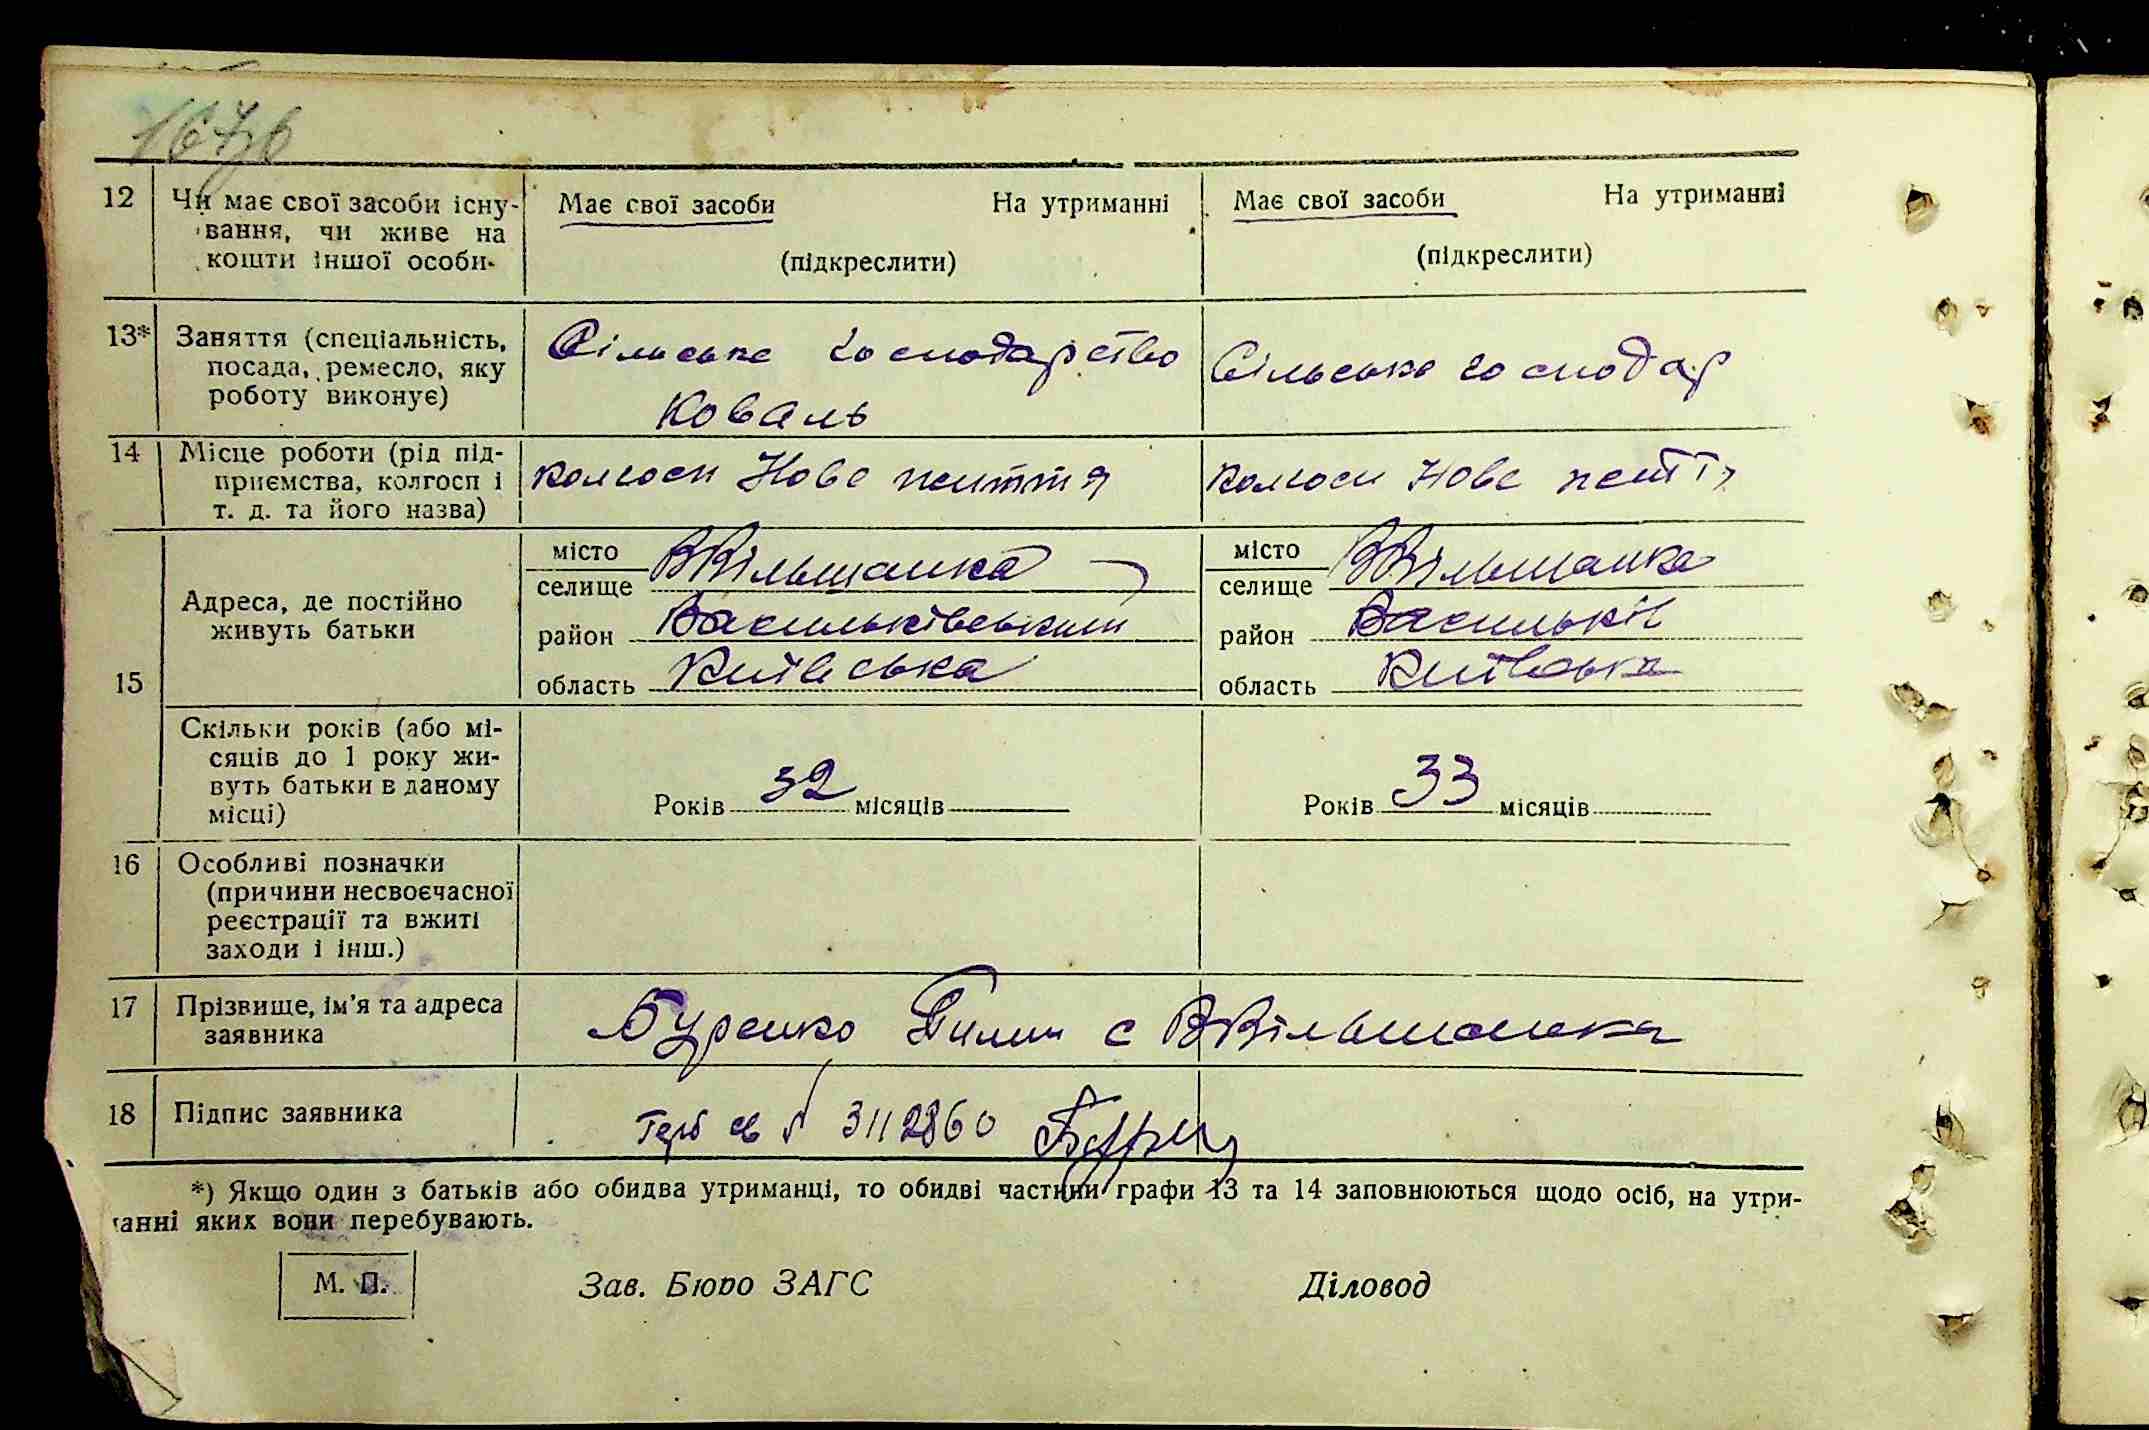 12 Чи має свої засоби існу-
вання, чи живе на
кошти іншої особи.
Має свої засоби На утриманні
(підкреслити)
Має свої засоби На утриманні
(підкреслити)
13* Заняття (спеціальність,
посада, ремесло, яку
роботу виконує)
Сільське господарство
Коваль
Сільське господар
14 Місце роботи (рід під-
приємства, колгосп і
т. д. та його назва)
колгосп Нове життя
колгосп Нове життя
15
Адреса, де постійно
живуть батьки
місто
селище ВВільшанка
район Васильківський
область Київська
місто
селище ВВільшанка
район Васильків
область Київська
Скільки років (або мі-
сяців до 1 року жи-
вуть батьки в даному
місці)
Років 32 місяців
Років 33 місяців
16 Особливі позначки
(причини несвоєчасної
реєстрації та вжиті
заходи і інш.)
17 Прізвище, ім'я та адреса
заявника
Буренко с ВВільшанка
18 Підпис заявника
3112860
*) Якщо один з батьків або обидва утриманці, то обидві частини графи 13 та 14 заповнюються щодо осіб, на утри-
анні яких вони перебувають.
М. П. Зав. Бюро ЗАГС Діловод